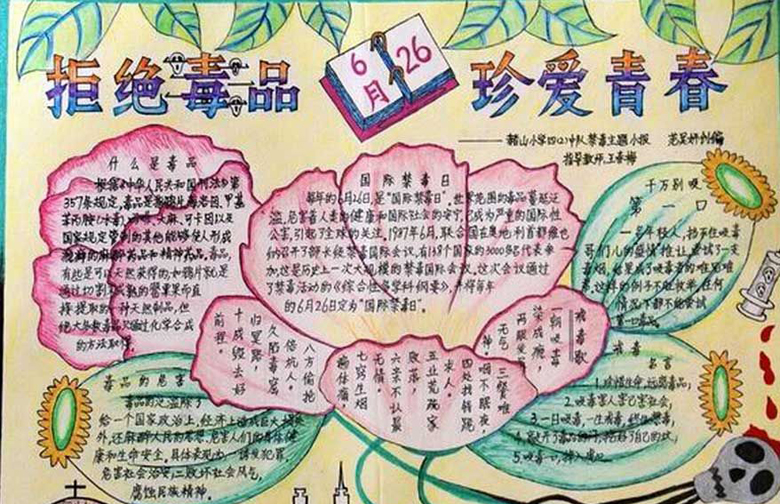 拒绝毒品
6月26
珍爱青春
鞍山小学四(2)中队禁毒主题小报
指导教师:王春梅
什么是毒品
根据《中华人民共和国刑法》第
357条规定,毒品是指鸦片、海洛因、甲基
苯丙胺(冰毒)、吗啡、大麻、可卡因以及
国家规定管制的其他能够使人形成
瘾癖的麻醉药品和精神药品。毒品,
有些是可以天然获得的,如鸦片就是
通过切割未成熟的罂粟果而直
接提取的一种天然制品,但
绝大多数毒品只通过化学合成
的方法取得。
国际禁毒日
每年的6月26日,是"国际禁毒日"。世界范围的毒品蔓延泛
滥,危害着人类的健康和国际社会的安宁,已成为严重的国际性
公害,引起了全球的关注。1987年6月,联合国在奥地利首都维也
纳召开了部长级禁毒国际会议,有138个国家的3000多名代表参
加,这是历史上一次大规模的禁毒国际会议,这次会议通过
了禁毒活动的《综合性多学科纲要》,并将每年
的6月26日定为"国际禁毒日"。
千万别吸
第一口
一名年轻人,挡不住吸毒
哥们儿的盛情推让,尝试了一支
毒烟,结果成了吸毒者的
这样的例子不胜枚举,任何
情况下都不能尝试
第一口毒品。
戒毒歌
一朝吸毒
染成瘾,
两眼
无气
神。
三餐难
咽不眠夜,
四处找钱跪
求人。
五业荒疏家
败落,
六亲不认最
无情。
七窍生烟
遍体痛,
八方偷抢
倍坑人。
久陷毒窟
归冥路,
十成毁去好
前程。
毒品的危害
毒品的泛滥除了
给一个国家政治上,经济上造成巨大损失
外,还麻醉人民的思想,危害人们的身体健
康和生命安全,具体表现为:一诱发犯罪,
危害社会治安;二败坏社会风气,
腐蚀民族精神。
戒毒
名言
1.珍惜生命,远离毒品;
2.吸毒害人害己害社会;
3.一日吸毒,一生戒毒,终生想毒;
5.吸毒一口,掉入虎口。